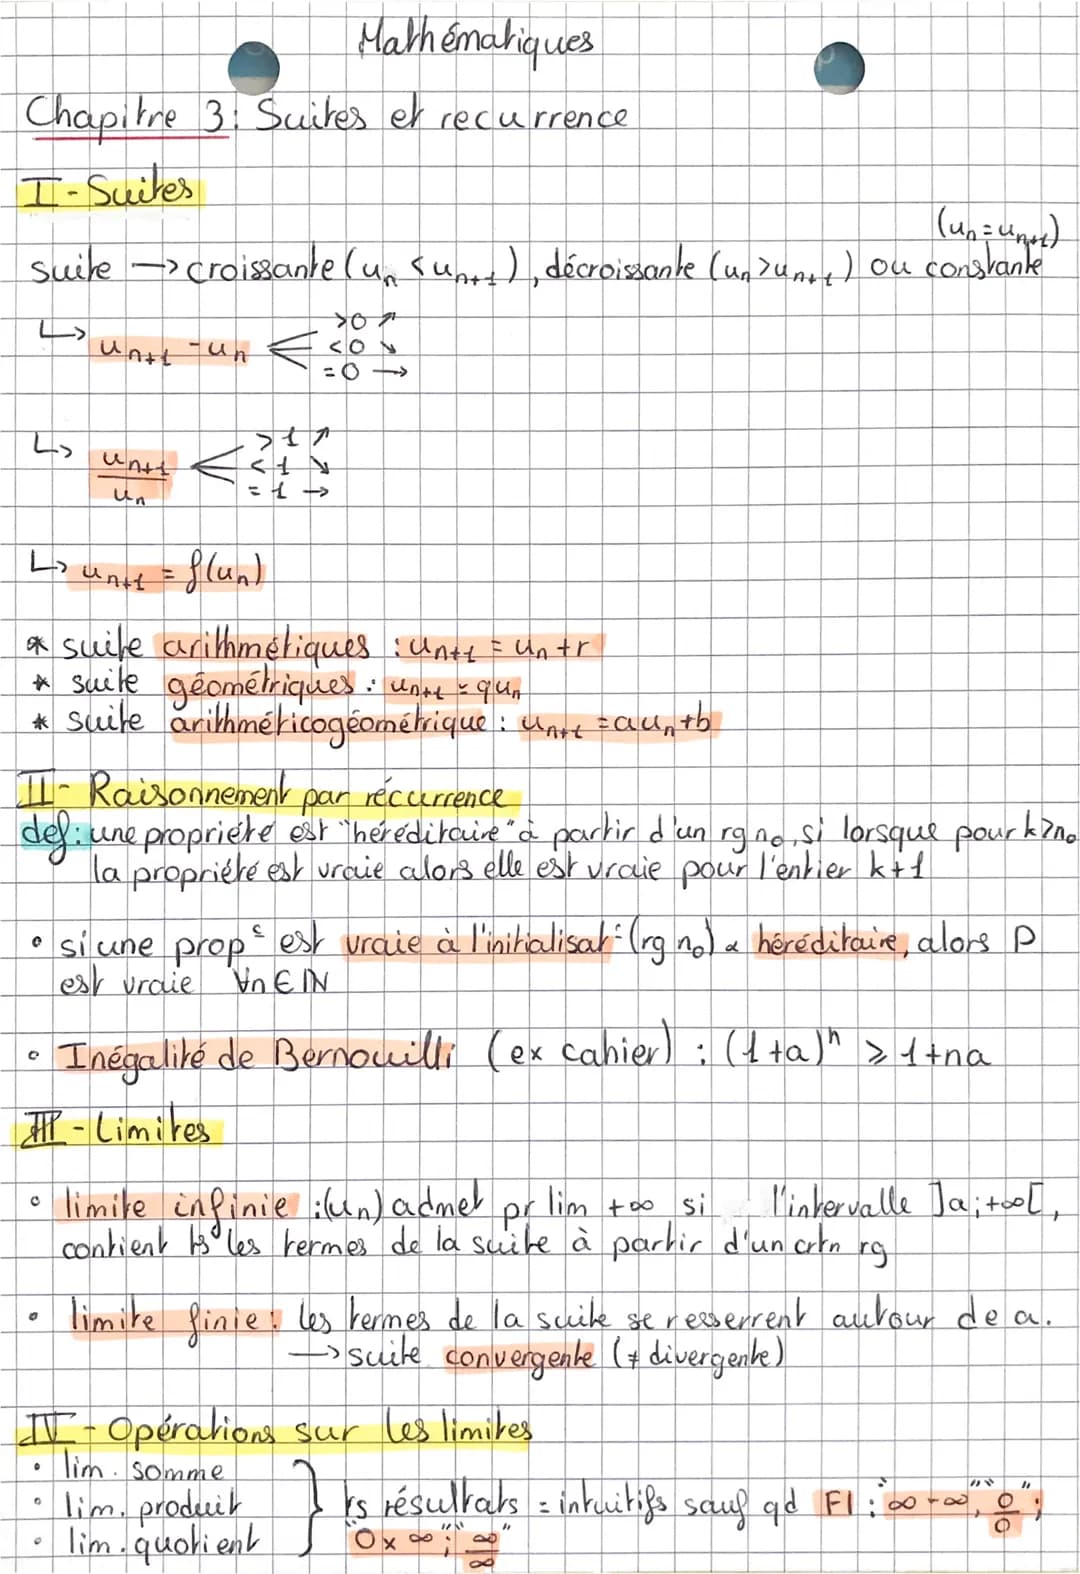 Mathématiques
Chapitre 3: Suites et recurrence
I - Suites
(uₙ = uₙ₊₁)
suite → croissante (uₙ < uₙ₊₁), décroissante (uₙ > uₙ₊₁) ou constante
>0 ↗
↳ uₙ₊₁ - uₙ <0 ↘
=0 →
>1 ↗
↳ uₙ₊₁/uₙ <1 ↘
=1 →
↳ uₙ₊₁ = f(uₙ)
* suite arithmétiques : uₙ₊₁ = uₙ + r
* suite géométriques : uₙ₊₁ = quₙ
* suite arithméticogéométrique : uₙ₊₁ = auₙ + b
II - Raisonnement par récurrence
def : une propriété est "héréditaire" à partir d'un rg n₀, si lorsque pour k ≥ n₀
la propriété est vraie alors elle est vraie pour l'entier k+1
• si une propᵗᵉ est vraie à l'initialisat° (rg n₀) & héréditaire, alors P
est vraie ∀n ∈ ℕ
• Inégalité de Bernouilli (ex cahier) : (1+a)ⁿ ≥ 1+na
III - Limites
• limite infinie : (uₙ) admet pr lim +∞ si l'intervalle ]a;+∞[,
contient ts les termes de la suite à partir d'un crtn rg
• limite finie : les termes de la suite se resserrent autour de a.
→ suite convergente (≠ divergente)
IV - Opérations sur les limites
• lim. somme
• lim. produit } ts résultats = intuitifs sauf qd FI : "∞-∞", "0/0";
• lim. quotient "0×∞"; "∞/∞"